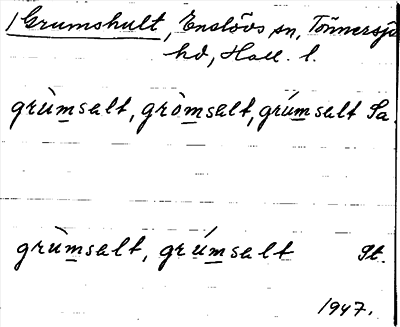 1 Grumshult, Enslövs sn, Tönnersjö
hd, Hall. l.
grùm̲salt, gròm̲salt, grúm̲salt Sa.
grùm̲salt, grúm̲salt St.
1947.